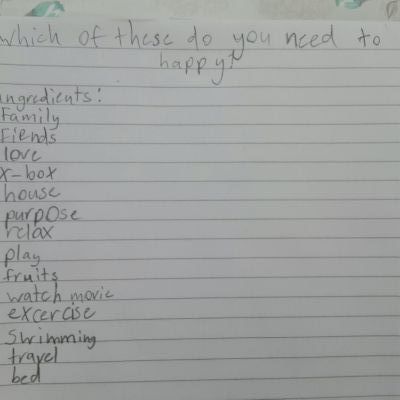 which of these do you need to
happy?
ingredients:
Family
Fiends
love
x-box
house
purpose
relax
play
fruits
watch movie
excercise
swimming
travel
bed